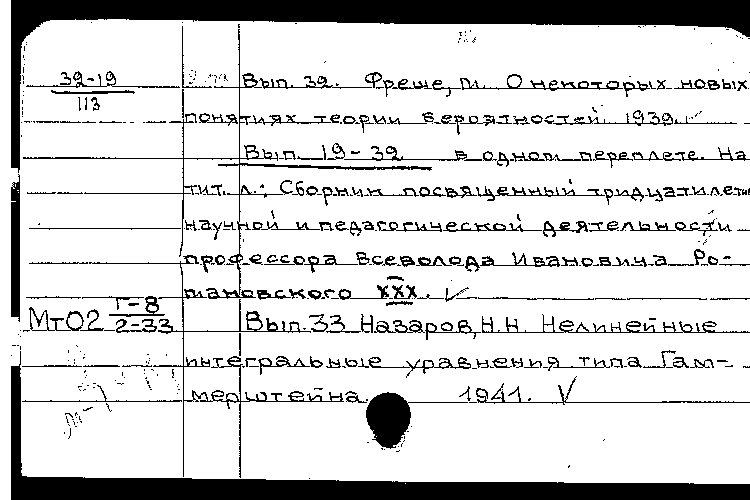 39-19
113
Вып. 39. Фреше, М. О некоторых новых
понятиях теории вероятностей. 1939.
Вып. 19-39 в одном переплете. На
тит. л.: Сборник посвященный тридцатилетию
научной и педагогической деятельности
профессора Всеволода Ивановича Ро-
мановского XXX. V
МтО2 Г-8
2-33
Вып. 33 Назаров, Н.Н. Нелинейные
интегральные уравнения типа Гам-
мерштейна. 1941. V